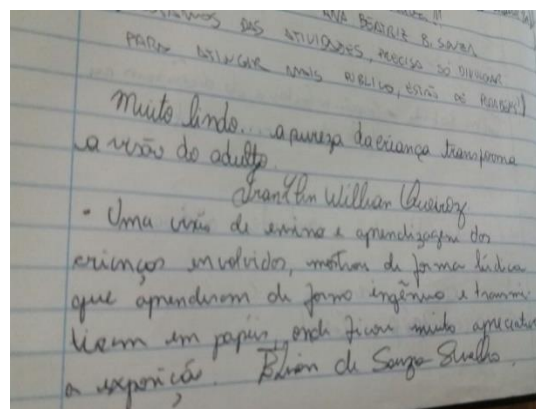 ANA BEATRIZ B. SOUZA
DAS ATIVIDADES, PRECISA SÓ DIVULGAR
PARA ATINGIR MAIS PÚBLICO, ESTÃO DE PARABÉNS!
Muito lindo... a pureza da criança transforma
a visão do adulto.
Franklin Willian Queiroz
- Uma visão de ensino e aprendizagem dos
crianças envolvidos, mostrou de forma lúdica
que aprenderam de forma ingênua e transmi-
tiram em papéis, onde ficou muito
a exposição. de Souza